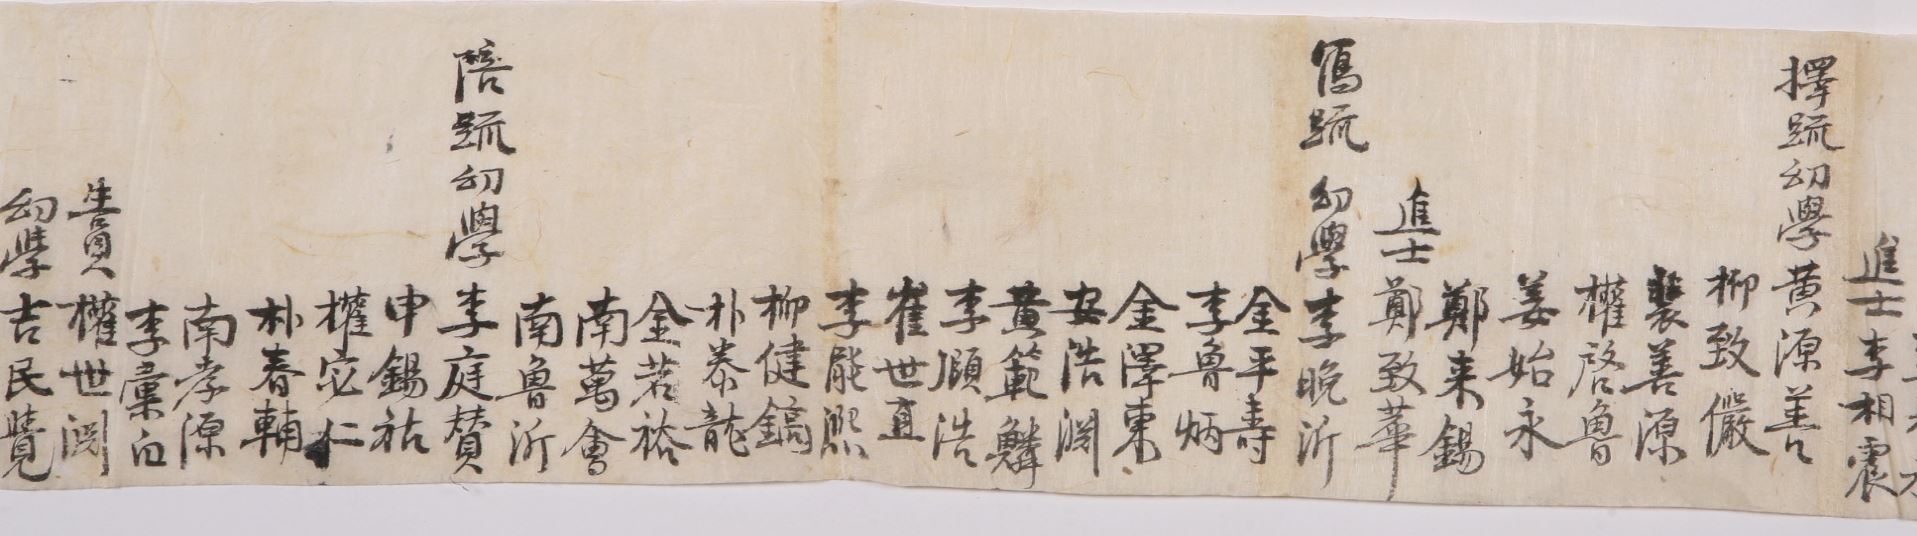 進士李相震
擇疏幼學黃源善
柳致儼
裴善源
權啓魯
姜始永
鄭来錫
進士鄭致華
寫疏幼學李晚沂
全平壽
李魯炳
金澤東
安浩淵
黃範麟
李頋浩
崔世直
李能熙
柳健鎬
朴泰龍
金若裕
南萬會
南魯沂
陪疏幼學李庭賛
申錫祜
權宅仁
朴春輔
南孝源
李彙白
生員權世淵
幼學吉民覽